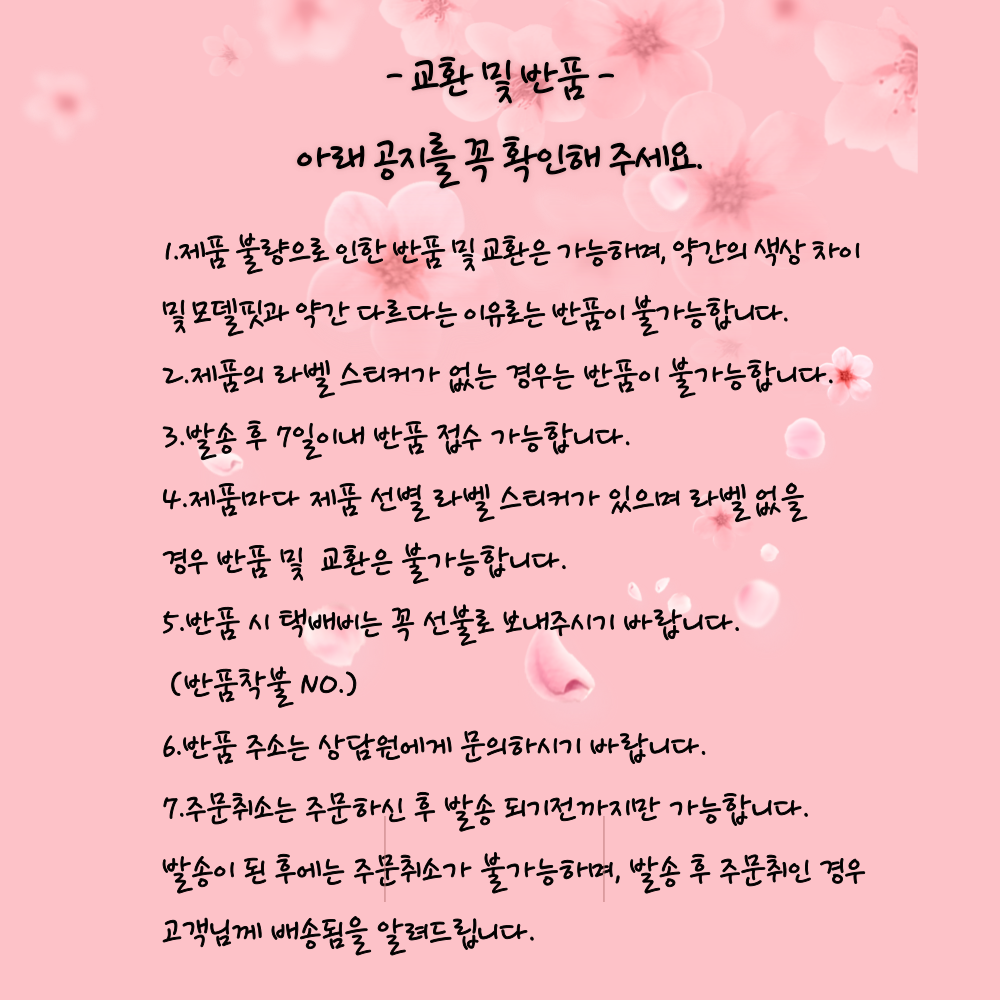 - 교환 및 반품 -
아래 공지를 꼭 확인해 주세요.
1.제품 불량으로 인한 반품 및 교환은 가능하며, 약간의 색상 차이
및 모델핏과 약간 다르다는 이유로는 반품이 불가능합니다.
2.제품의 라벨 스티커가 없는 경우는 반품이 불가능합니다.
3.발송 후 7일이내 반품 접수 가능합니다.
4.제품마다 제품 선별 라벨 스티커가 있으며 라벨 없을
경우 반품 및 교환은 불가능합니다.
5.반품 시 택배비는 꼭 선불로 보내주시기 바랍니다.
(반품착불 NO.)
6.반품 주소는 상담원에게 문의하시기 바랍니다.
7.주문취소는 주문하신 후 발송 되기전까지만 가능합니다.
발송이 된 후에는 주문취소가 불가능하며, 발송 후 주문취인 경우
고객님께 배송됨을 알려드립니다.